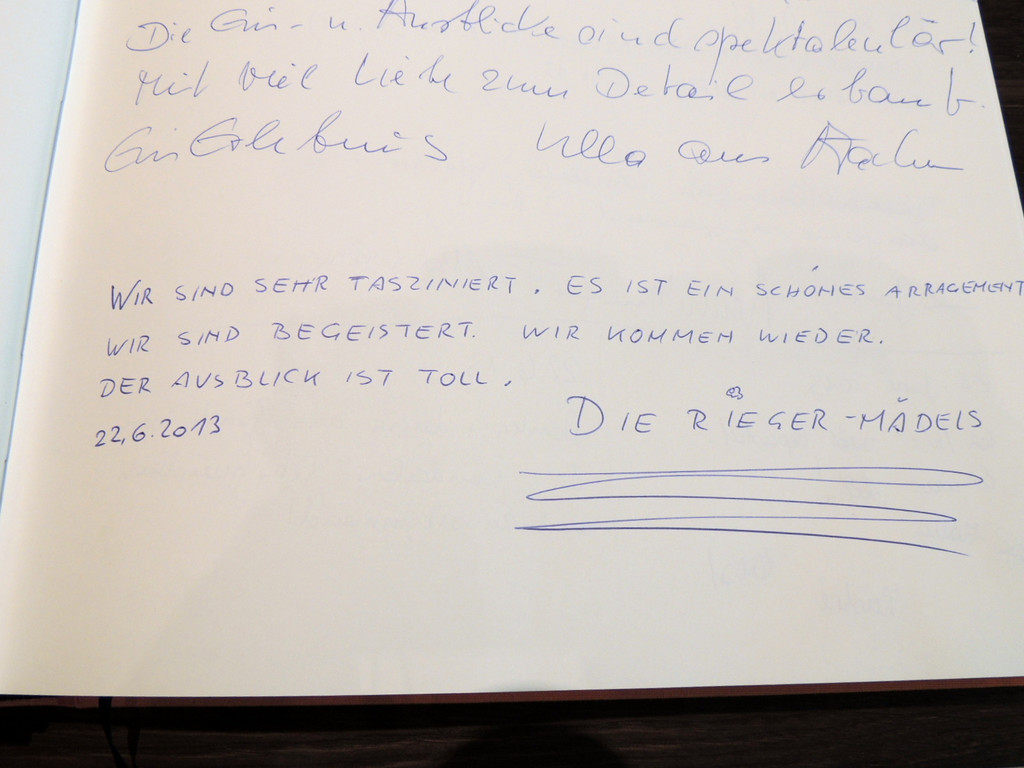 Die Ein- u. Ausblicke sind spektakulär!
Mit viel Liebe zum Detail erbaut.
Ein Erlebnis Ulla aus
WIR SIND SEHR FASZINIERT. ES IST EIN SCHÖNES ARRAGEMENT
WIR SIND BEGEISTERT. WIR KOMMEN WIEDER.
DER AUSBLICK IST TOLL.
22.6.2013 DIE RIEGER-MÄDELS